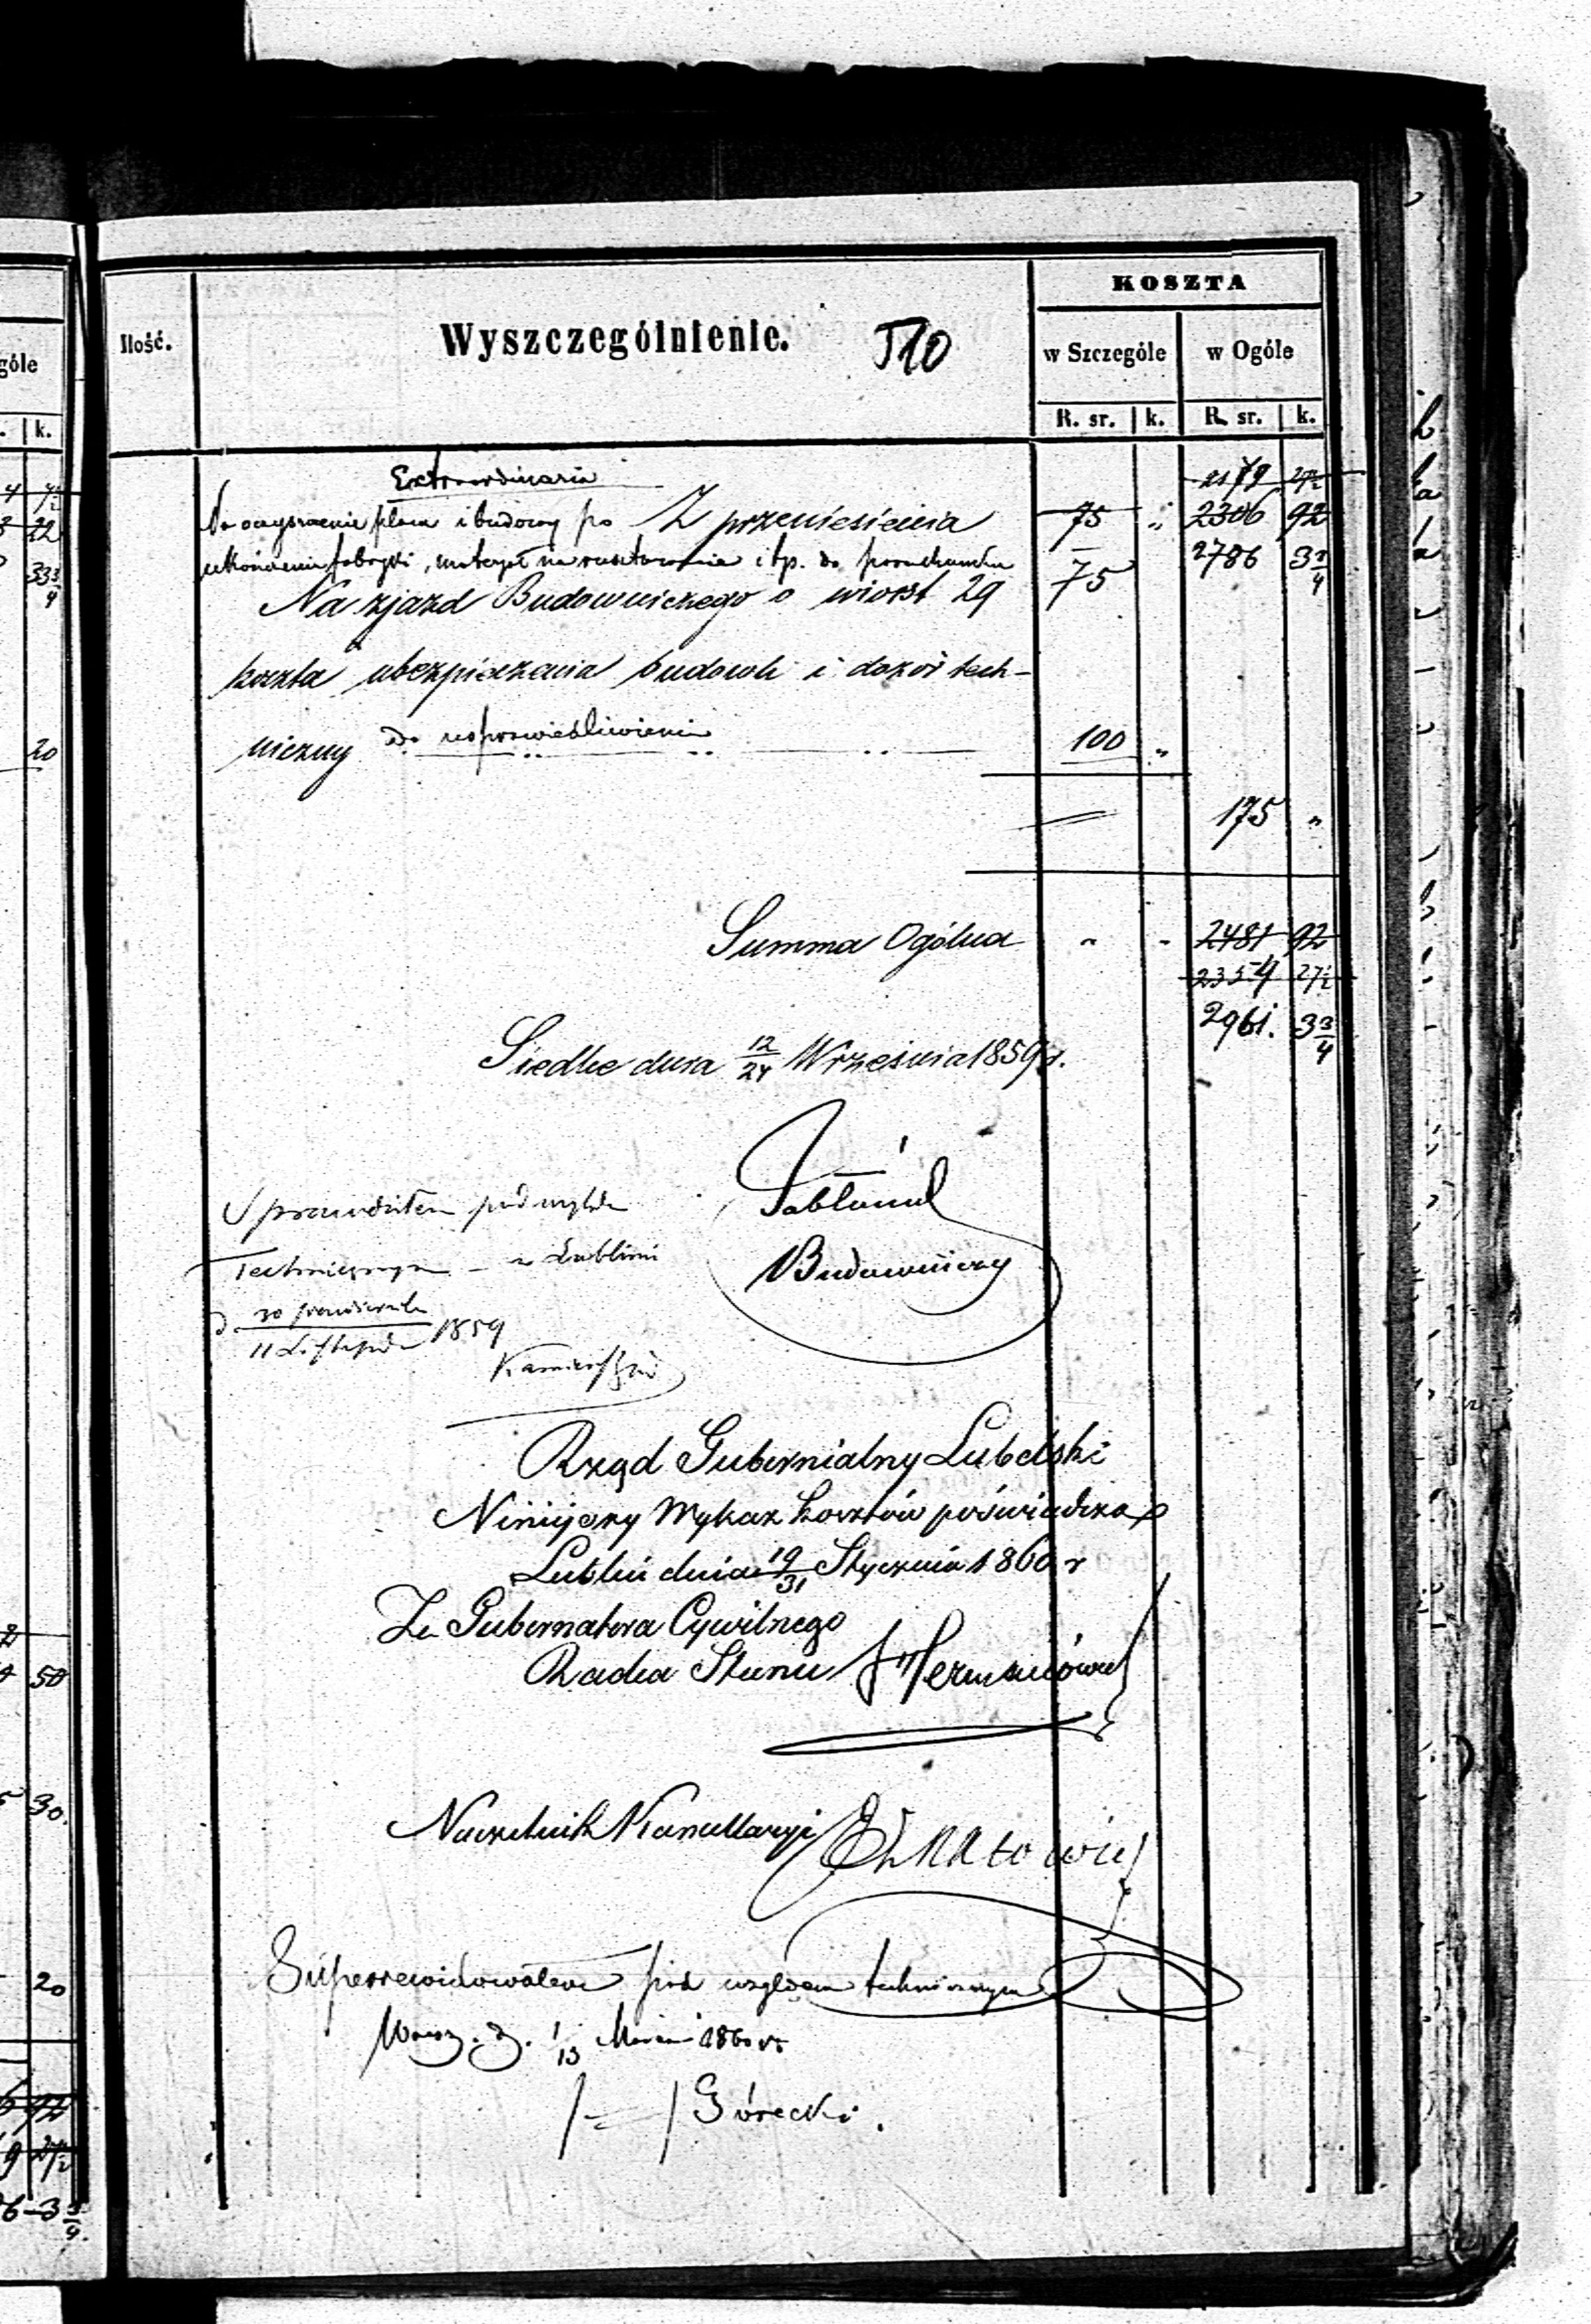 góle
k.
KOSZTA
Ilość.
Wyszczególnienie.
510
w Szczególe
w Ogóle
R. sr. k. R. sr. k.
Extraordinaria
2179 27½
Na oczyszczenie placu i budowy po Z przeniesienia 75 " 2306 92
ukończeniu fabryki, materyał na rusztowanie i tp. do porachunku 75 2786 3¾
Na zjazd Budowniczego o wiorst 29
koszta ubezpieczenia budowli i dozór tech-
niczny do usprawiedliwienia 100 "
175 "
Summa Ogólna " " 2481 92
2354 27½
2961. 3¾
Siedlce dnia 12/24 Września 1859 r.
Sprawdziłem pod względe
Technicznym - w Lublinie
d 30 października / 11 Listopada 1859
Budowniczy
Rząd Gubernialny Lubelski
Niniejszy Wykaz kosztów poświadcza
Lublin dnia 19/31 Stycznia 1860 r
Za Gubernatora Cywilnego
Radca Stanu
Naczelnik Kancellaryi
Superrewidowałem pod względem technicznym
Warsz. d. 1/13 Marca 1860 r.
/-/ Górecki.